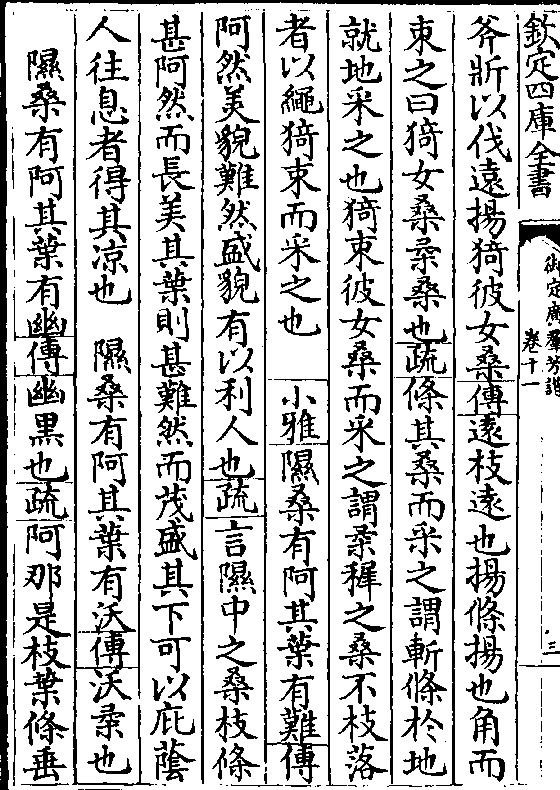 欽定四庫全書
御定廣羣芳譜
卷十一
三
斧斨以伐遠揚猗彼女桑傳遠枝遠也揚條揚也角而
束之曰猗女桑荑桑也疏條其桑而采之謂斬條於地
就地采之也猗束彼女桑而采之謂柔穉之桑不枝落
者以繩猗束而采之也　小雅隰桑有阿其葉有難傳
阿然美貌難然盛貌有以利人也疏言隰中之桑枝條
甚阿然而長美其葉則甚難然而茂盛其下可以庇蔭
人往息者得其凉也　隰桑有阿其葉有沃傳沃柔也
隰桑有阿其葉有幽傳幽黒也疏阿那是枝葉條垂